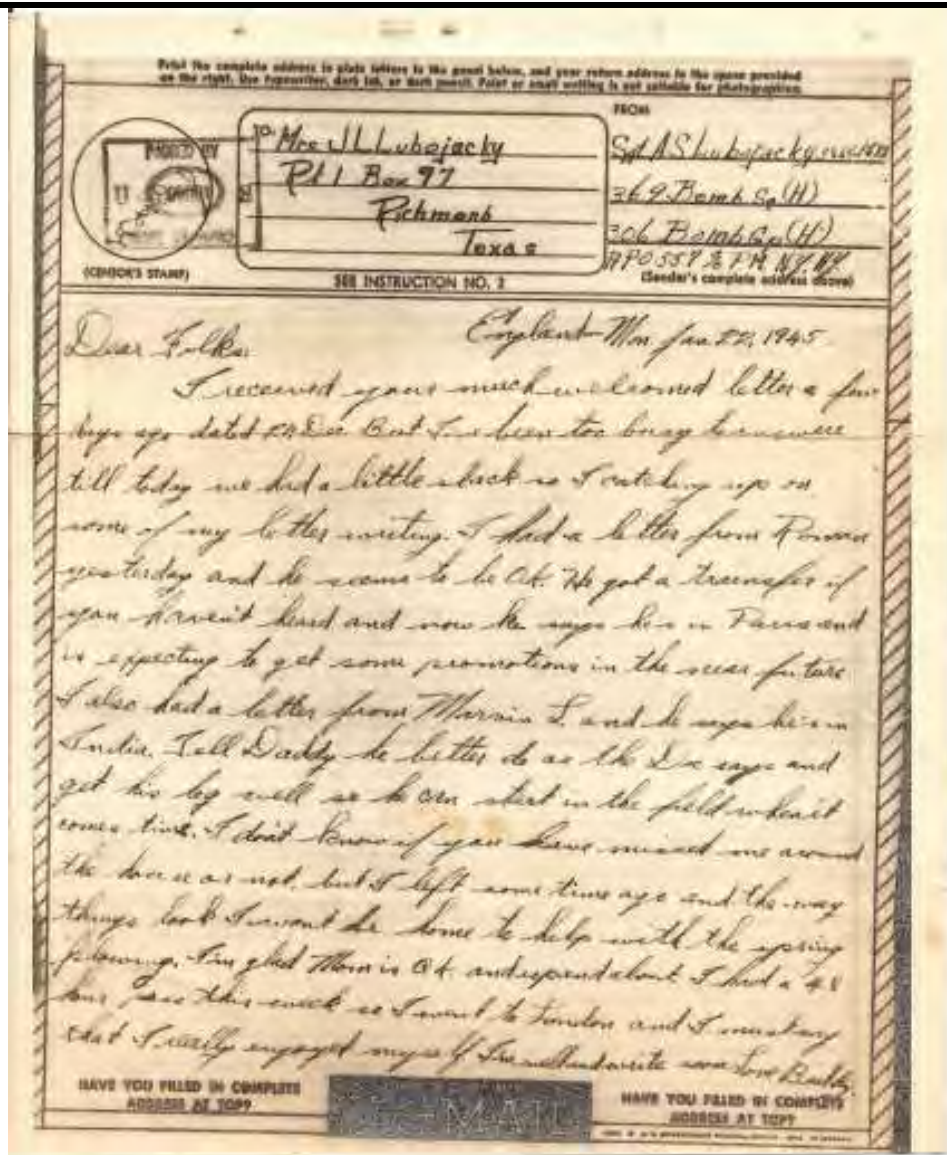 Print the complete address in plain letters in the panel below, and your return address in the space provided
on the right. Use typewriter, dark ink, or dark pencil. Faint or small writing is not suitable for photographing.
FROM
TO:
Mrs J L Lubojacky
Rt 1 Box 97
Richmond
Texas
Sgt A S Lubojacky
369 Bomb Sq (H)
306 Bomb Gp (H)
APO 557 % PM NY NY
(CENSOR'S STAMP)
SEE INSTRUCTION NO. 2
(Sender's complete address above)
England Mon Jan 22, 1945
Dear Folks:
I received your much welcomed letter a few
days ago dated Dec. But I've been too busy to answere
till today we had a little slack so I catching up on
some of my letter writing. I had a letter from
yesterday and he seems to be Ok. He got a transfer if
you haven't heard and now he says his in Paris and
is expecting to get some promotions in the near future
I also had a letter from Marvin S. and he says his in
India. Tell Daddy he better do as the Dr says and
get his leg well so he can start in the field when it
comes time. I don't know if you have missed me around
the house or not, but I left some time ago and the way
things look I wont be home to help with the spring
plowing. I'm glad Mom is Ok. and up and about I had a 48
hour pass this week so I went to London and I must say
that I really enjoyed myself I'm well and write soon Love Buddy
HAVE YOU FILLED IN COMPLETE
ADDRESS AT TOP?
V-MAIL
HAVE YOU FILLED IN COMPLETE
ADDRESS AT TOP?